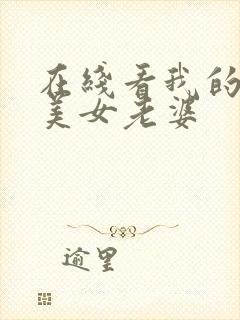 在綫看我的
美女老婆
逾里